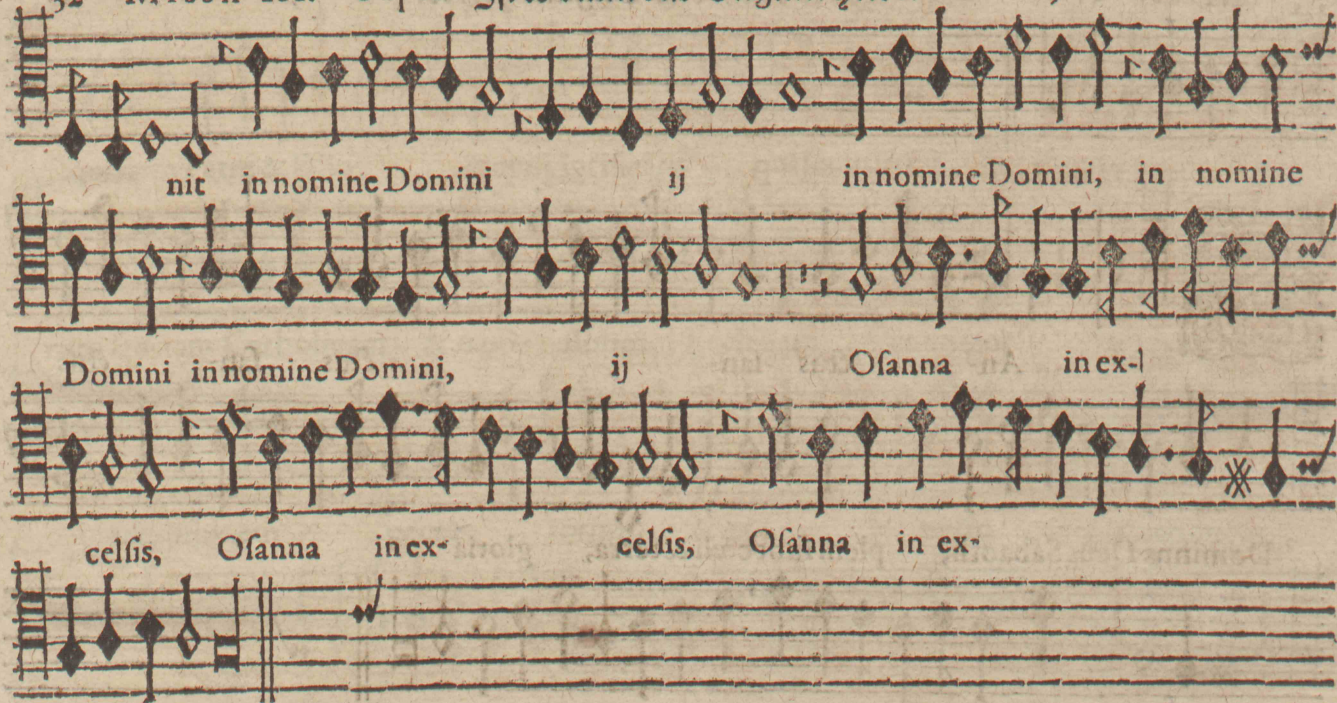 nit in nomine Domini ij in nomine Domini, in nomine
Domini in nomine Domini, ij Oſanna in ex-
celſis, Oſanna in ex- celſis, Oſanna in ex-